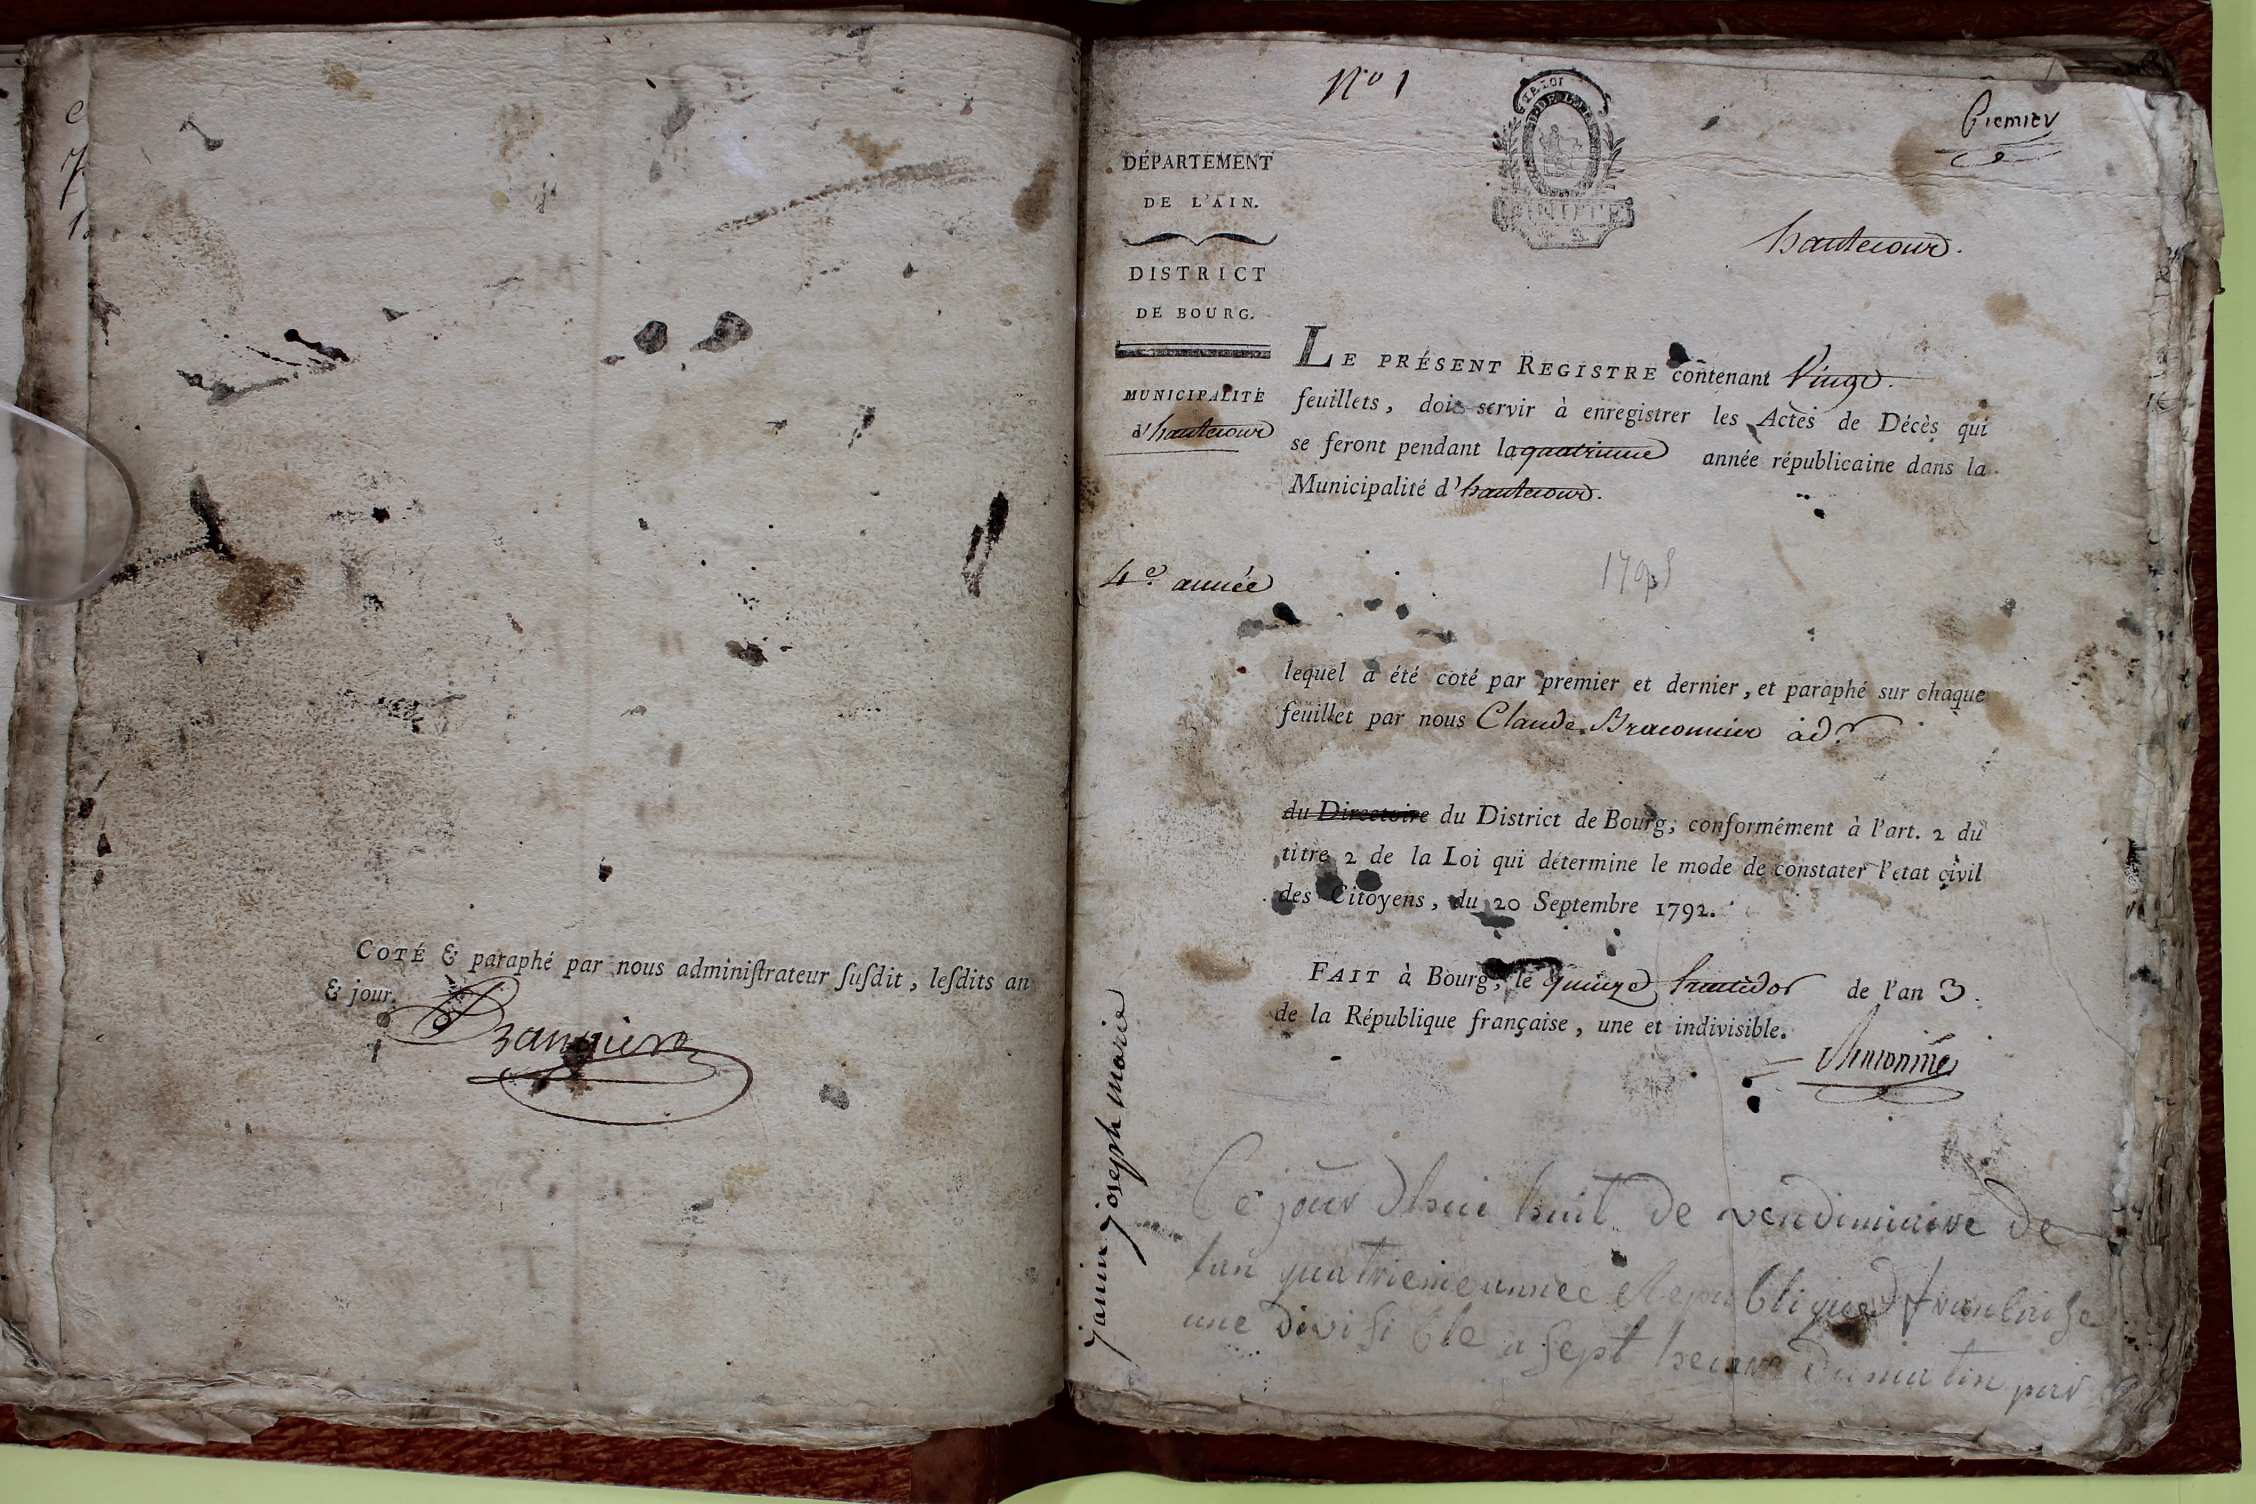 COTÉ & paraphé par nous adminiſtrateur ſuſdit, leſdits an
& jour.
No 1
LA LOI
Premier
DÉPARTEMENT
DE L'AIN.
hautecour.
DISTRICT
DE BOURG.
MUNICIPALITÉ
d'hautecour
LE PRÉSENT REGISTRE contenant Vingt
feuillets, doit servir à enregistrer les Actes de Décès qui
se feront pendant la quatrieme année républicaine dans la
Municipalité d'hautecour.
4e. année
1795
lequel a été coté par premier et dernier, et paraphé sur chaque
feuillet par nous Claude Braconnier adr
du Directoire du District de Bourg, conformément à l'art. 2 du
titre 2 de la Loi qui détermine le mode de constater l'etat civil
des Citoyens, du 20 Septembre 1792.
FAIT à Bourg, le quinze fructidor de l'an 3.
de la République française, une et indivisible.
Braconnier
janin joseph marie
Ce jour dhui huit de vendimiaire de
lan quatrieme annee Republique francaise
une divisible a sept heure du matin par